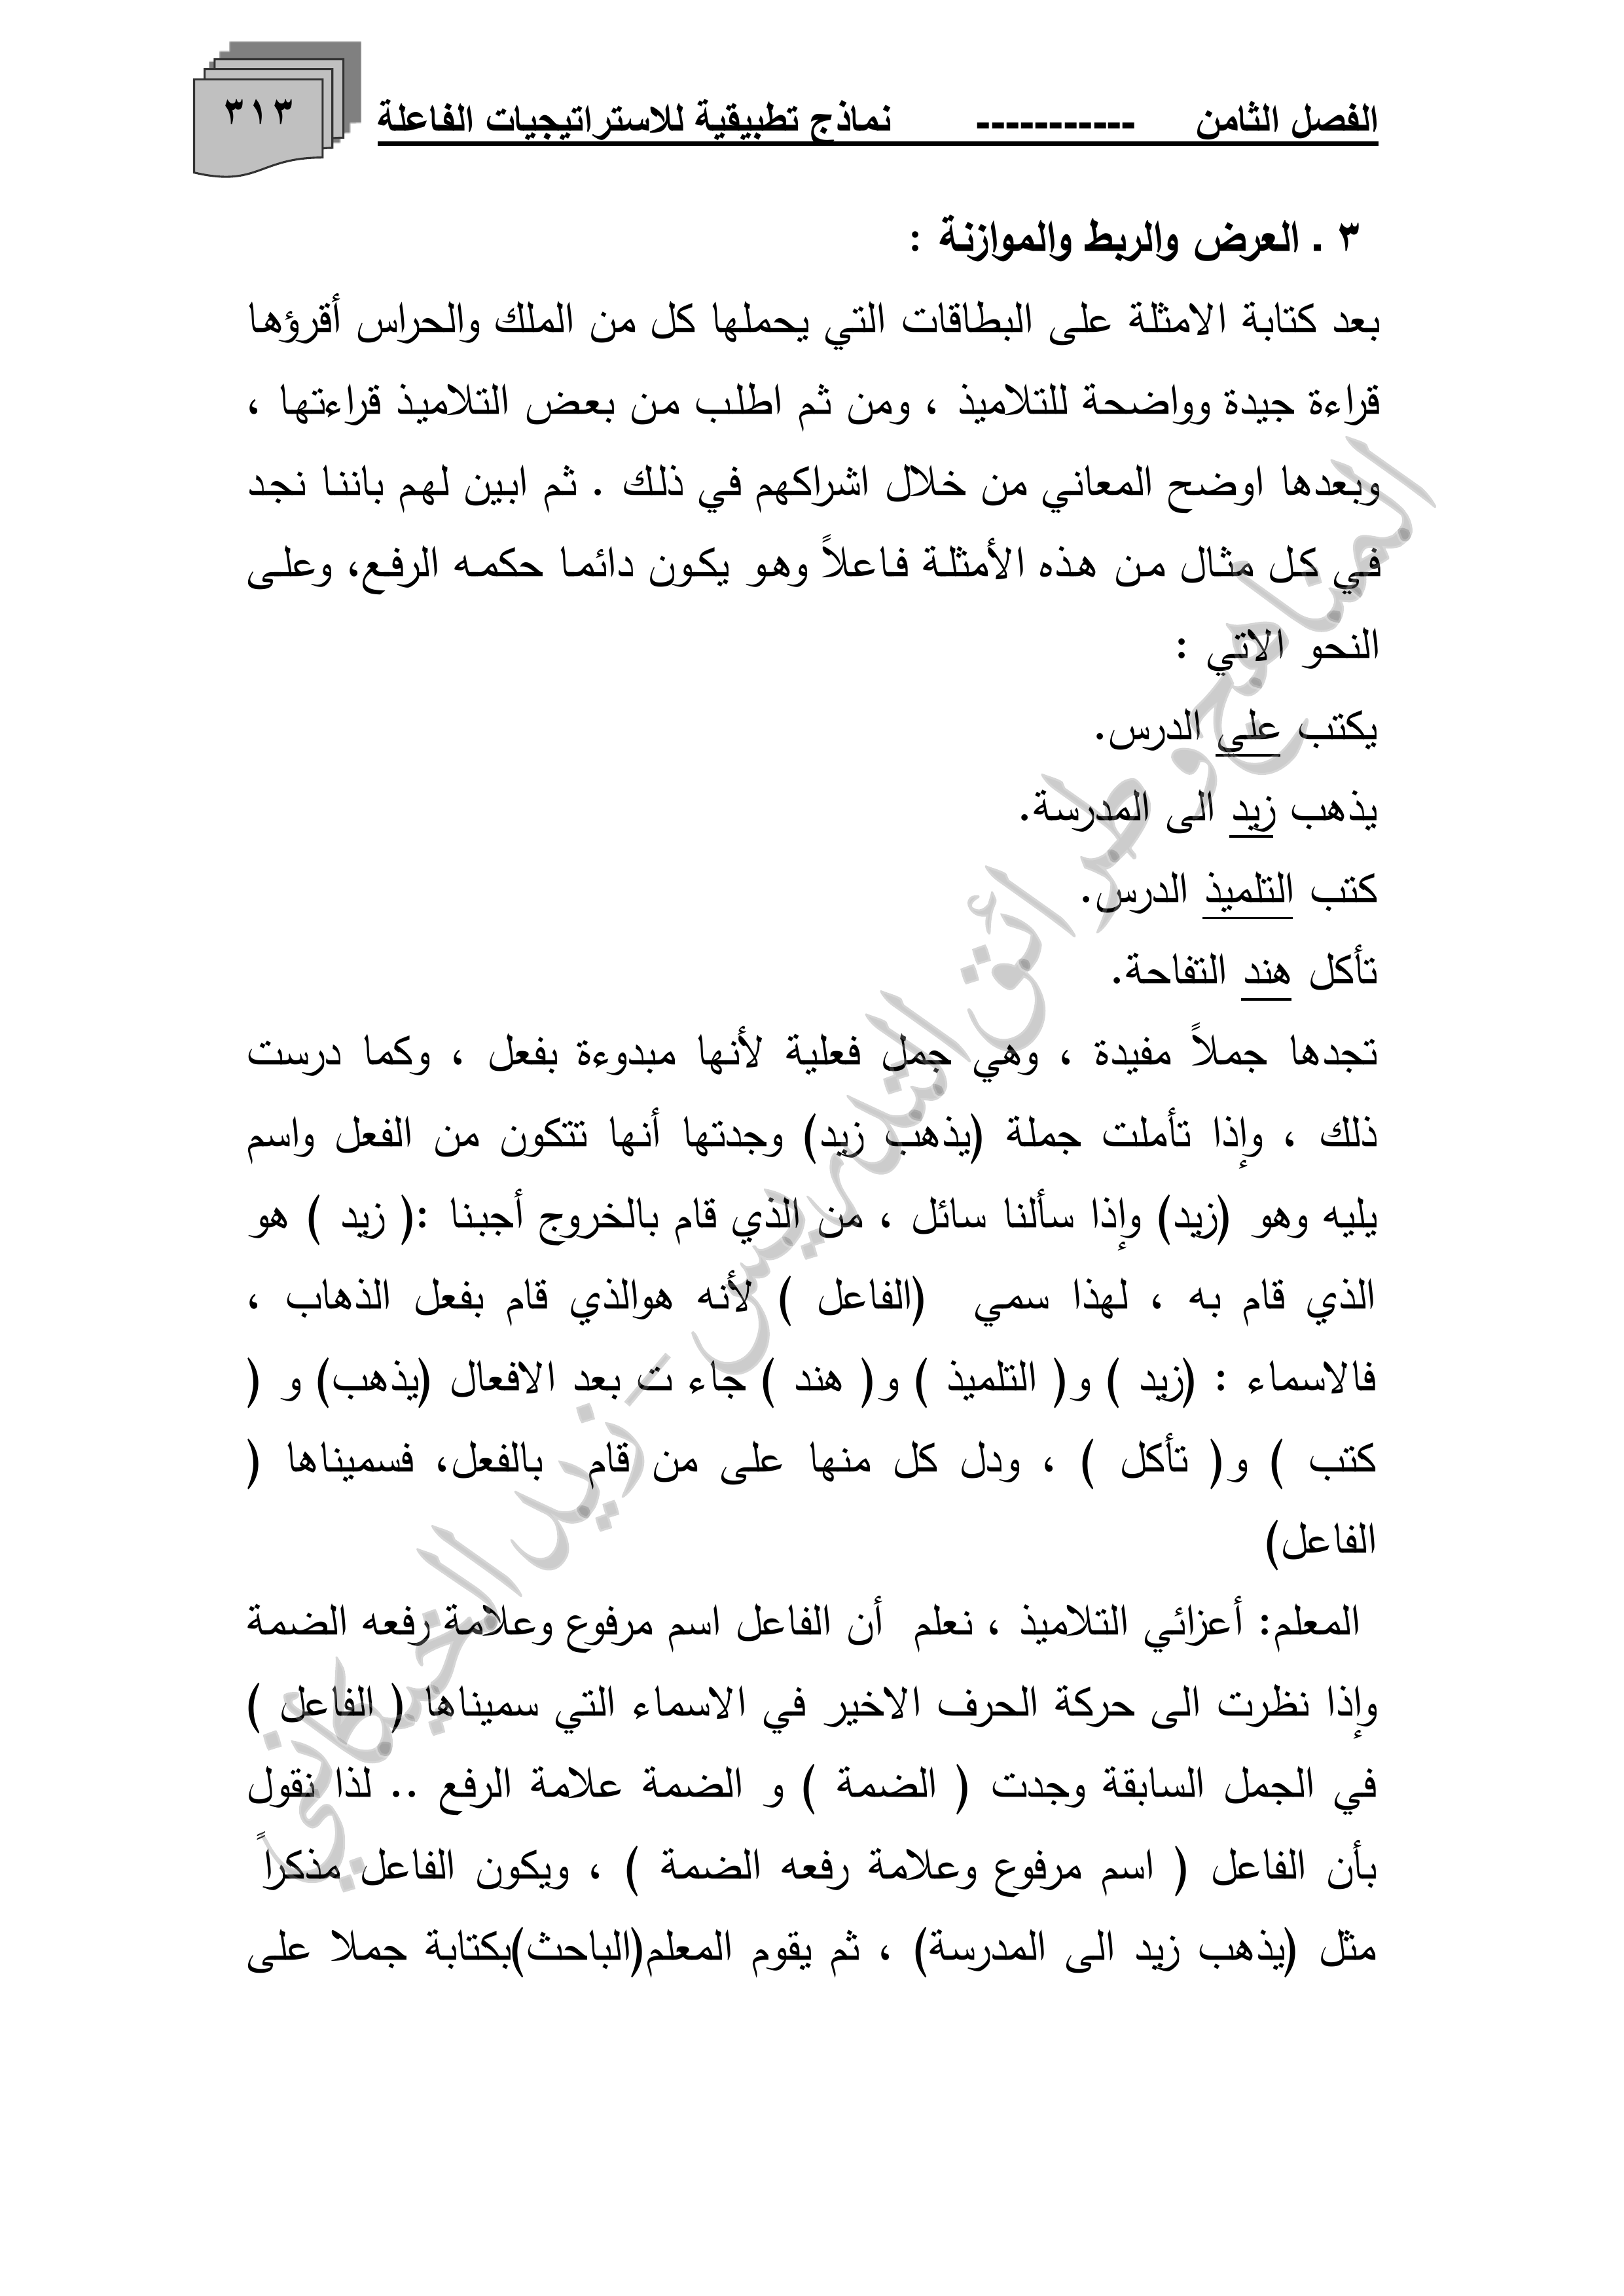 الفصل الثامن ----------- نماذج تطبيقية للاستراتيجيات الفاعلة
٣١٣
٣ . العرض والربط والموازنة :
بعد كتابة الامثلة على البطاقات التي يحملها كل من الملك والحراس أقرؤها
قراءة جيدة وواضحة للتلاميذ ، ومن ثم اطلب من بعض التلاميذ قراءتها ،
وبعدها اوضح المعاني من خلال اشراكهم في ذلك . ثم ابين لهم باننا نجد
في كل مثال من هذه الأمثلة فاعلاً وهو يكون دائما حكمه الرفع، وعلى
النحو الاتي :
يكتب علي الدرس.
يذهب زيد الى المدرسة.
كتب التلميذ الدرس.
تأكل هند التفاحة.
تجدها جملاً مفيدة ، وهي جمل فعلية لأنها مبدوءة بفعل ، وكما درست
ذلك ، وإذا تأملت جملة (يذهب زيد) وجدتها أنها تتكون من الفعل واسم
يليه وهو (زيد) وإذا سألنا سائل ، من الذي قام بالخروج أجبنا :( زيد ) هو
الذي قام به ، لهذا سمي (الفاعل ) لأنه هوالذي قام بفعل الذهاب ،
فالاسماء : (زيد ) و( التلميذ ) و( هند ) جاء ت بعد الافعال (يذهب) و (
كتب ) و( تأكل ) ، ودل كل منها على من قام بالفعل، فسميناها (
الفاعل)
المعلم: أعزائي التلاميذ ، نعلم أن الفاعل اسم مرفوع وعلامة رفعه الضمة
وإذا نظرت الى حركة الحرف الاخير في الاسماء التي سميناها ( الفاعل )
في الجمل السابقة وجدت ( الضمة ) و الضمة علامة الرفع .. لذا نقول
بأن الفاعل ( اسم مرفوع وعلامة رفعه الضمة ) ، ويكون الفاعل مذكراً
مثل (يذهب زيد الى المدرسة) ، ثم يقوم المعلم(الباحث)بكتابة جملا على
المناهج وطرائق التدريس - زيد الخيكاني